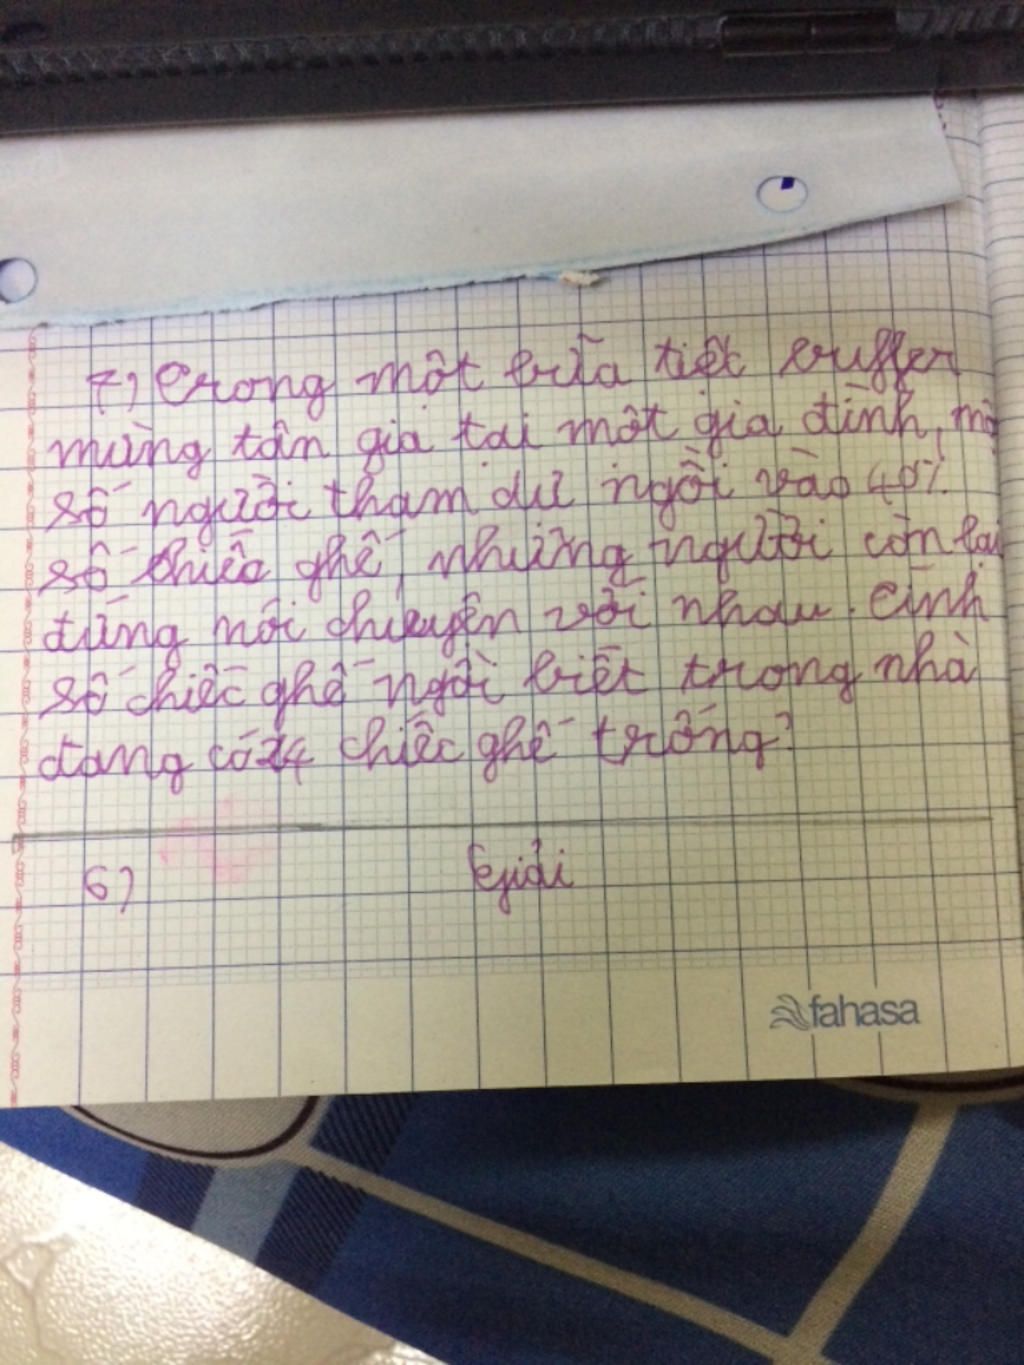 7) Trong một bữa tiệc buffer
mừng tân gia tại một gia đình, một
số người tham dự ngồi vào 40%
số chiếc ghế, những người còn lại
đứng nói chuyện với nhau. Tính
số chiếc ghế ngồi biết trong nhà
đang có 24 chiếc ghế trống?
6) Giải
fahasa